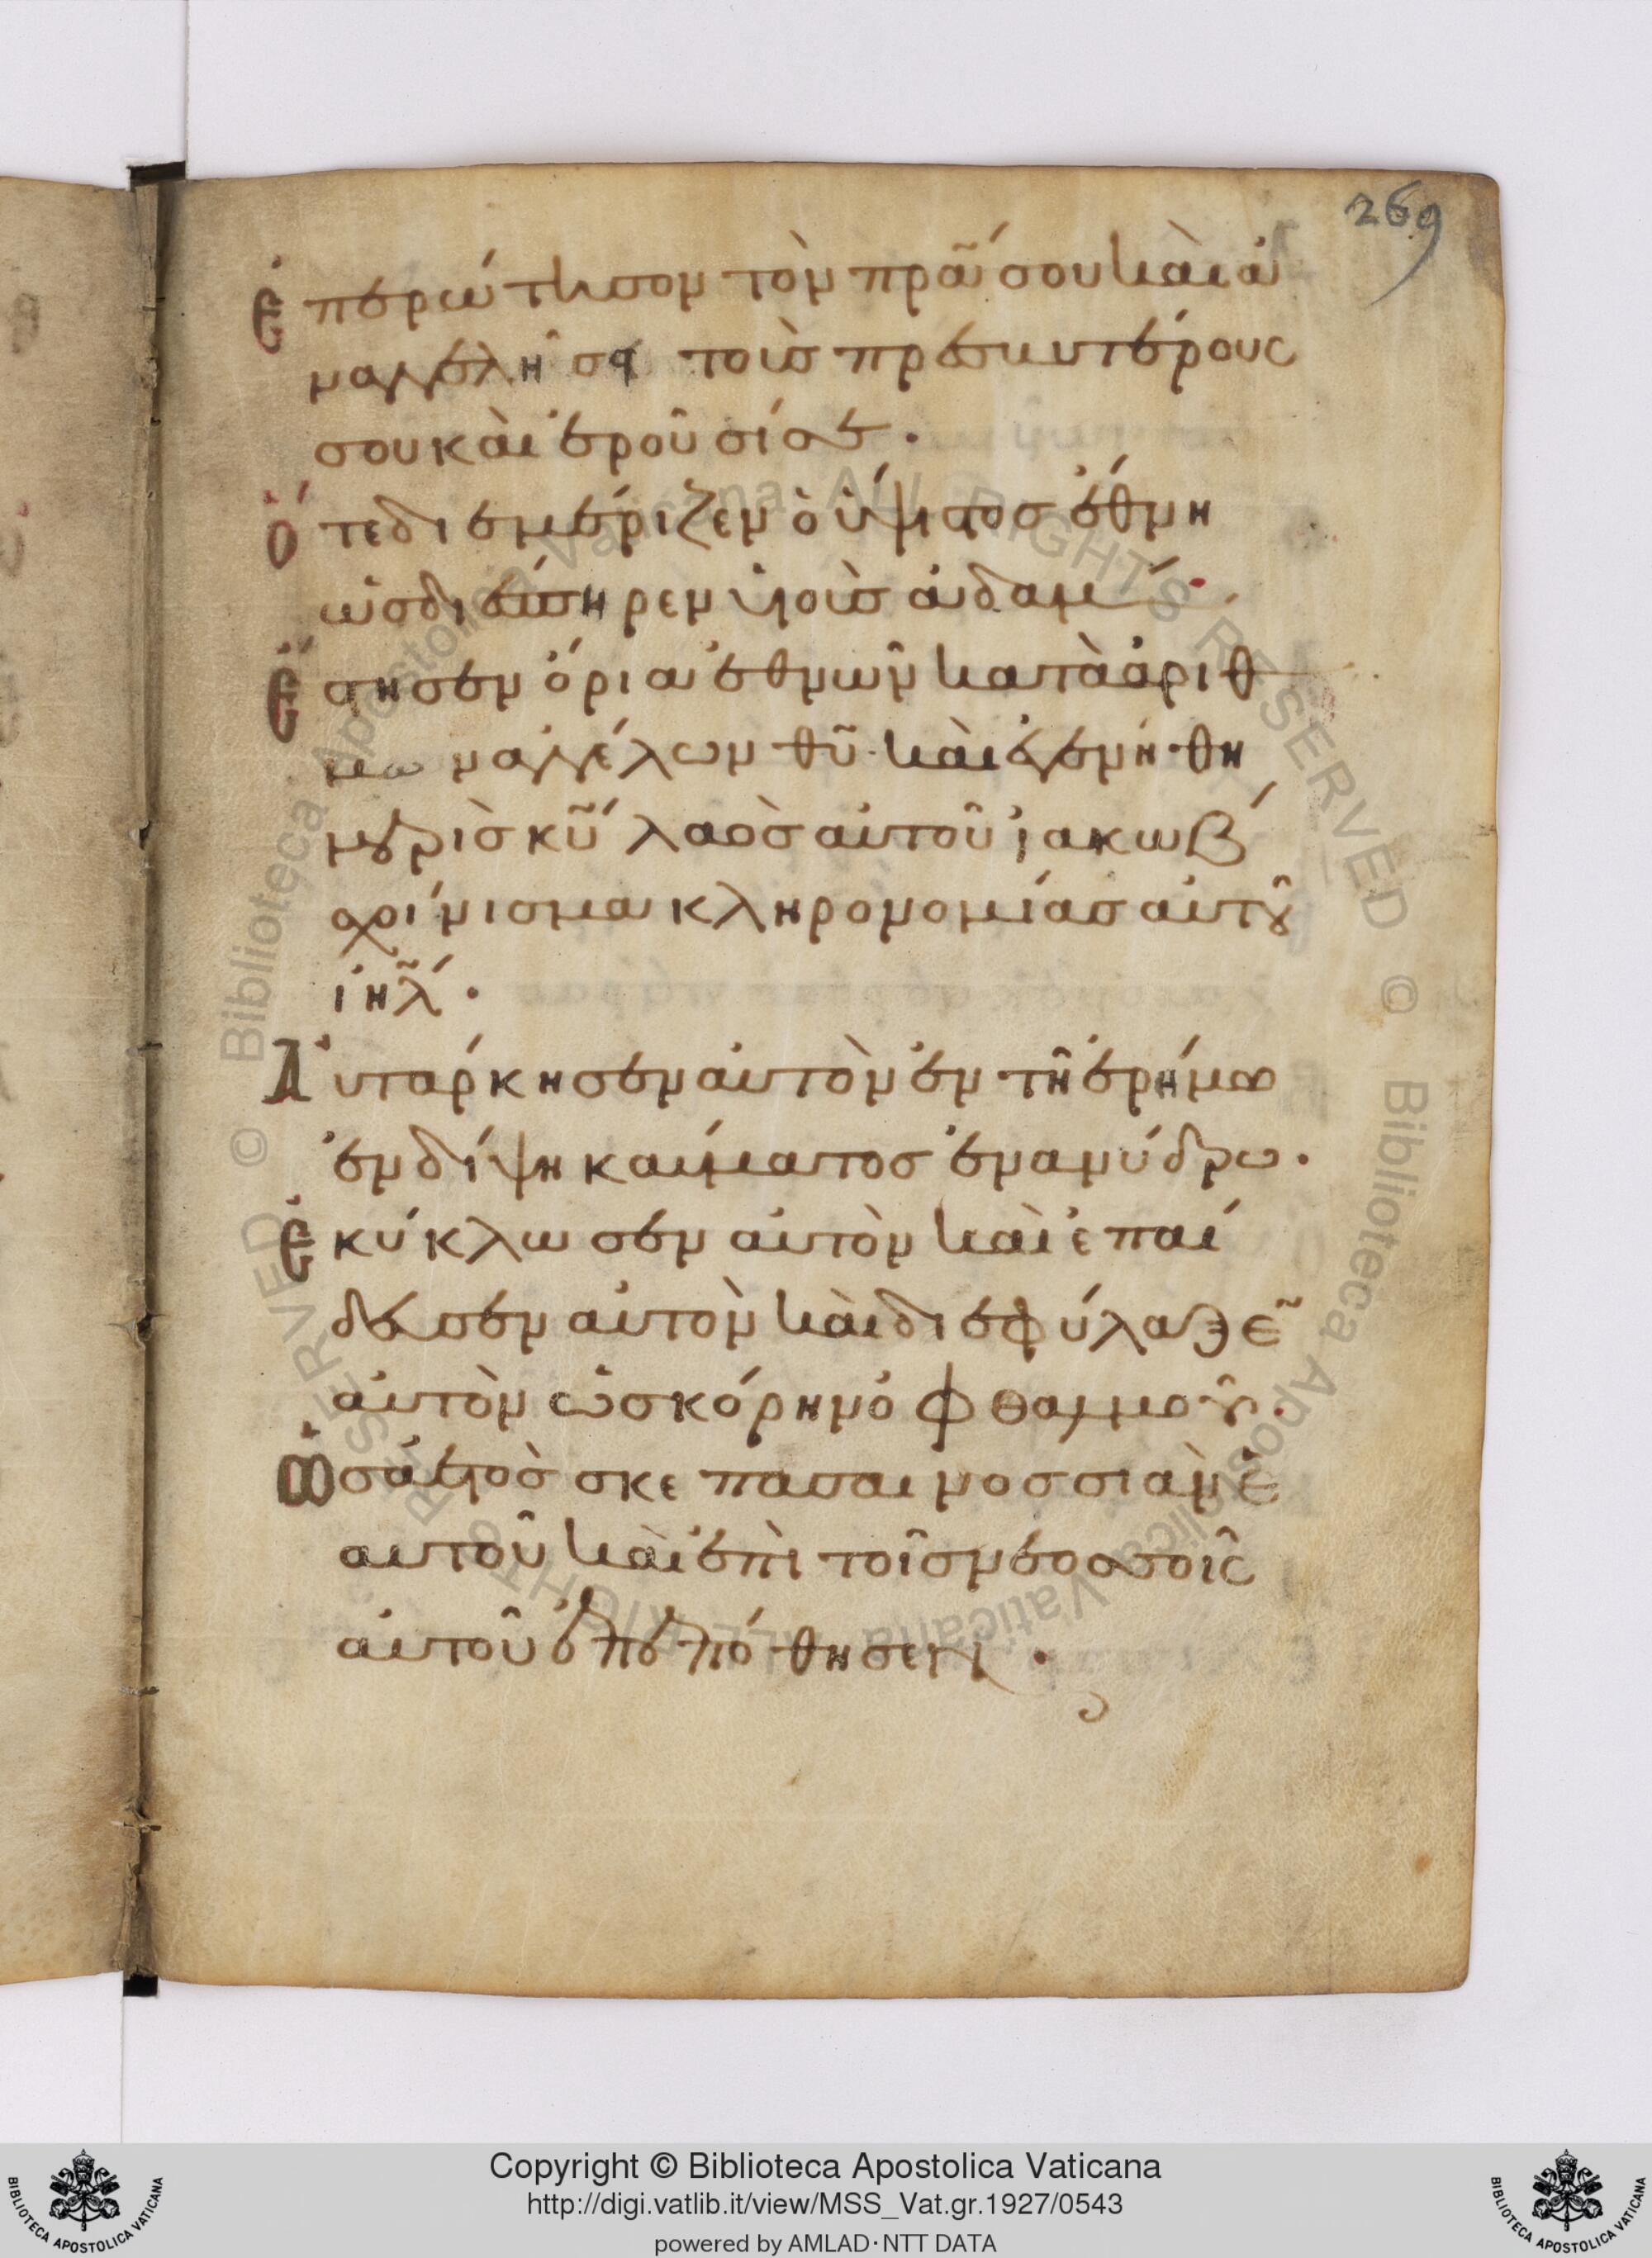 269
ἐπερώτησον τὸν πρᾶ σου καὶ ἀ
ναγγελη σοι τοὺς πρεσβυτέρους
σου καὶ ἐροῦσί σοι.
ὅτε διεμέριζεν ὁ ὕψιστος ἔθνη
ὡς διέσπηρεν υἱοὺς ἀδαμ.
ἔστησεν ὅρια ἐθνῶν κατὰ ἀριθ
μων ἀγγέλων θῦ. καὶ ἐγενήθη
μερὶς κῦ λαὸς αὐτοῦ ἰακωβ
σχοίνισμα κληρονομίας αὐτοῦ
ἰηλ.
Αὐτάρκησεν αὐτὸν ἐν τῆ ἐρήμω
ἐν δίψη καύματος ἐν ἀνύδρω.
ἐκύκλωσεν αὐτὸν καὶ ἐπαί
δευσεν αὐτὸν καὶ διεφύλαξε
αὐτὸν ὡς κόρην ὀφθαλμοῦ.
ὡς ἀετὸς σκεπάσαι νοσσιὰν ἑ
αυτοῦ καὶ ἐπὶ τοῖς νεοσσοῖς
αὐτοῦ ἐπεπόθησεν.
© Biblioteca Apostolica Vaticana ALL RIGHTS RESERVED © Biblioteca Apostolica Vaticana ALL RIGHTS RESERVED
Copyright © Biblioteca Apostolica Vaticana
http://digi.vatlib.it/view/MSS_Vat.gr.1927/0543
powered by AMLAD·NTT DATA
BIBLIOTECA APOSTOLICA VATICANA
BIBLIOTECA APOSTOLICA VATICANA